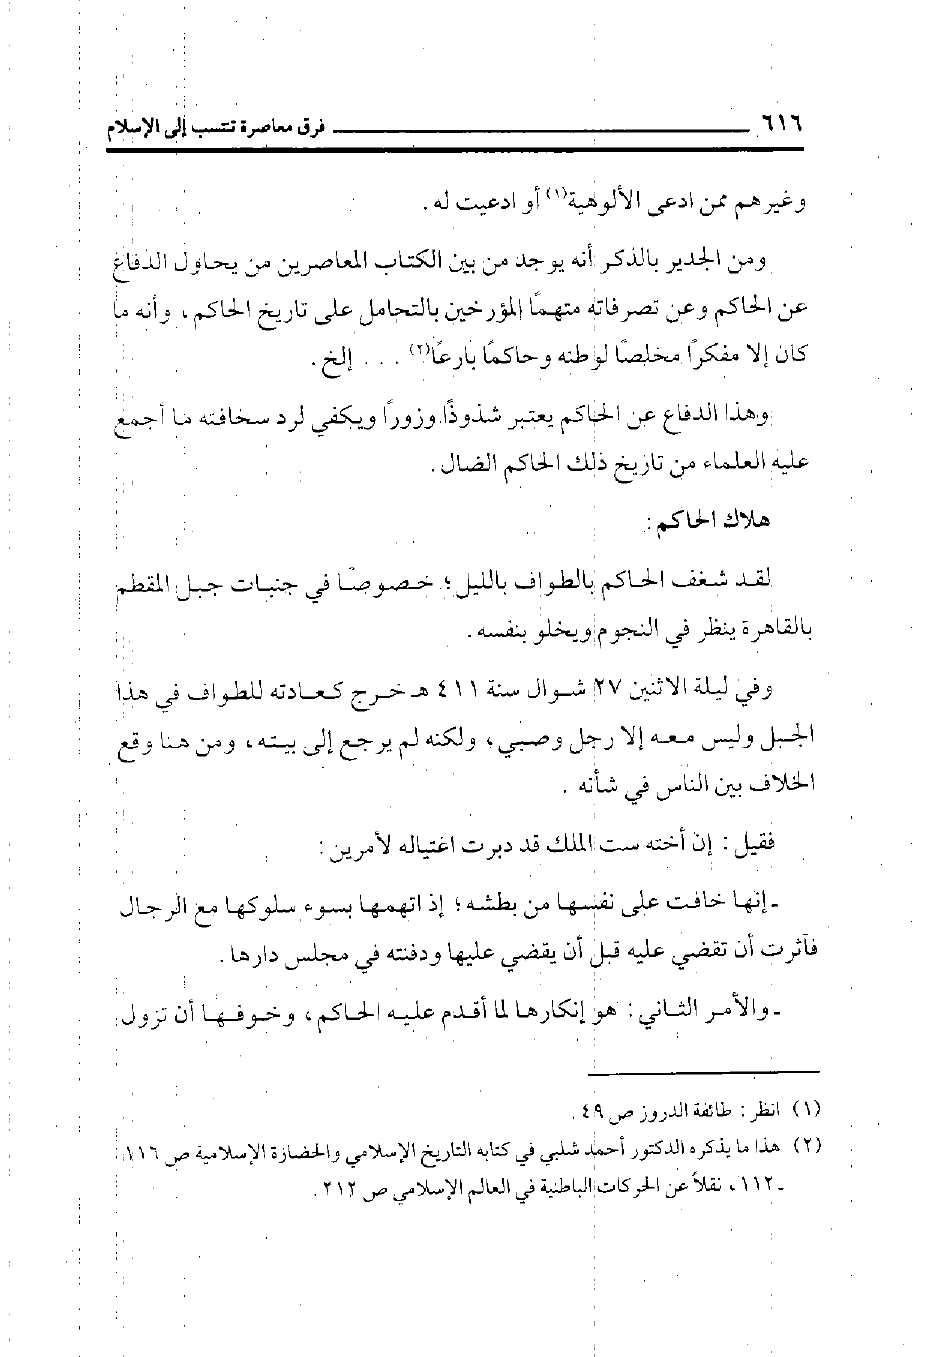 ٦١٦ فرق معاصرة تنتسب إلى الإسلام
وغيرهم ممن ادعى الألوهية(١) أو ادعيت له .
ومن الجدير بالذكر أنه يوجد من بين الكتاب المعاصرين من يحاول الدفاع
عن الحاكم وعن تصرفاته متهمًا المؤرخين بالتحامل على تاريخ الحاكم ، وأنه ما
كان إلا مفكرًا مخلصًا لوطنه وحاكمًا بارعًا(٢) . . . إلخ .
وهذا الدفاع عن الحاكم يعتبر شذوذًا وزورًا ويكفي لرد سخافته ما أجمع
عليه العلماء من تاريخ ذلك الحاكم الضال .
هلاك الحاكم :
لقد شغف الحاكم بالطواف بالليل ؛ خصوصًا في جنبات جبل المقطم
بالقاهرة ينظر في النجوم ويخلو بنفسه .
وفي ليلة الاثنين ٢٧ شوال سنة ٤١١ هـ خرج كعادته للطواف في هذا
الجبل وليس معه إلا رجل وصبي ، ولكنه لم يرجع إلى بيته ، ومن هنا وقع
الخلاف بين الناس في شأنه .
فقيل : إن أخته ست الملك قد دبرت اغتياله لأمرين :
ـ إنها خافت على نفسها من بطشه ؛ إذ اتهمها بسوء سلوكها مع الرجال
فآثرت أن تقضي عليه قبل أن يقضي عليها ودفنته في مجلس دارها .
ـ والأمر الثاني : هو إنكارها لما أقدم عليه الحاكم ، وخوفها أن تزول
(١) انظر : طائفة الدروز ص ٤٩ .
(٢) هذا ما يذكره الدكتور أحمد شلبي في كتابه التاريخ الإسلامي والحضارة الإسلامية ص ١١٦
ـ ١١٢ ، نقلاً عن الحركات الباطنية في العالم الإسلامي ص ٢١٢ .